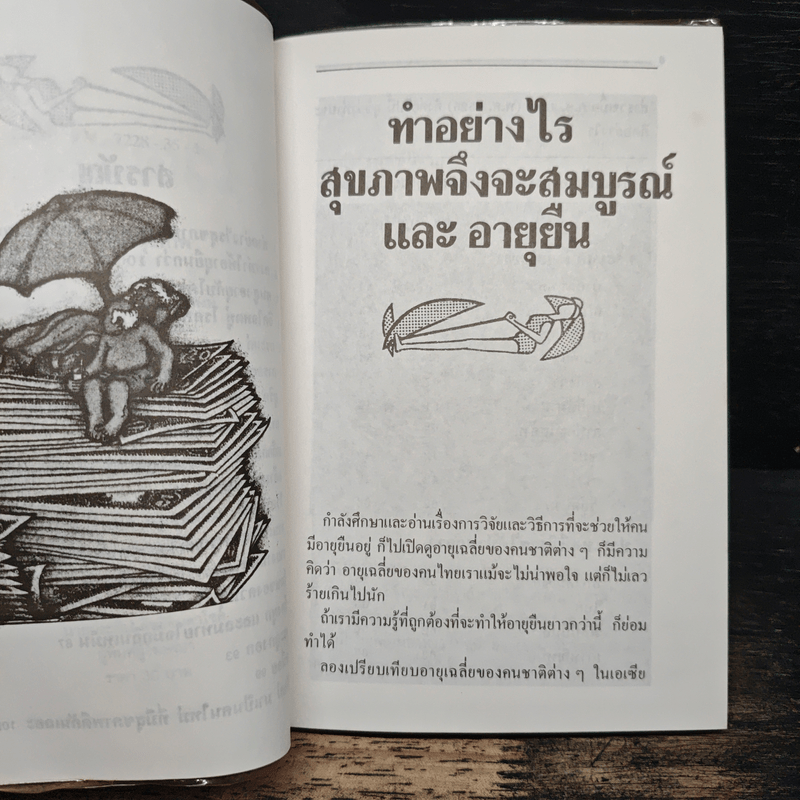 ทำอย่างไร
สุขภาพจึงจะสมบูรณ์
และ อายุยืน
กำลังศึกษาและอ่านเรื่องการวิจัยและวิธีการที่จะช่วยให้คน
มีอายุยืนอยู่ ก็ไปเปิดดูอายุเฉลี่ยของคนชาติต่าง ๆ ก็มีความ
คิดว่า อายุเฉลี่ยของคนไทยเราแม้จะไม่น่าพอใจ แต่ก็ไม่เลว
ร้ายเกินไปนัก
ถ้าเรามีความรู้ที่ถูกต้องที่จะทำให้อายุยืนยาวกว่านี้ ก็ย่อม
ทำได้
ลองเปรียบเทียบอายุเฉลี่ยของคนชาติต่าง ๆ ในเอเซีย